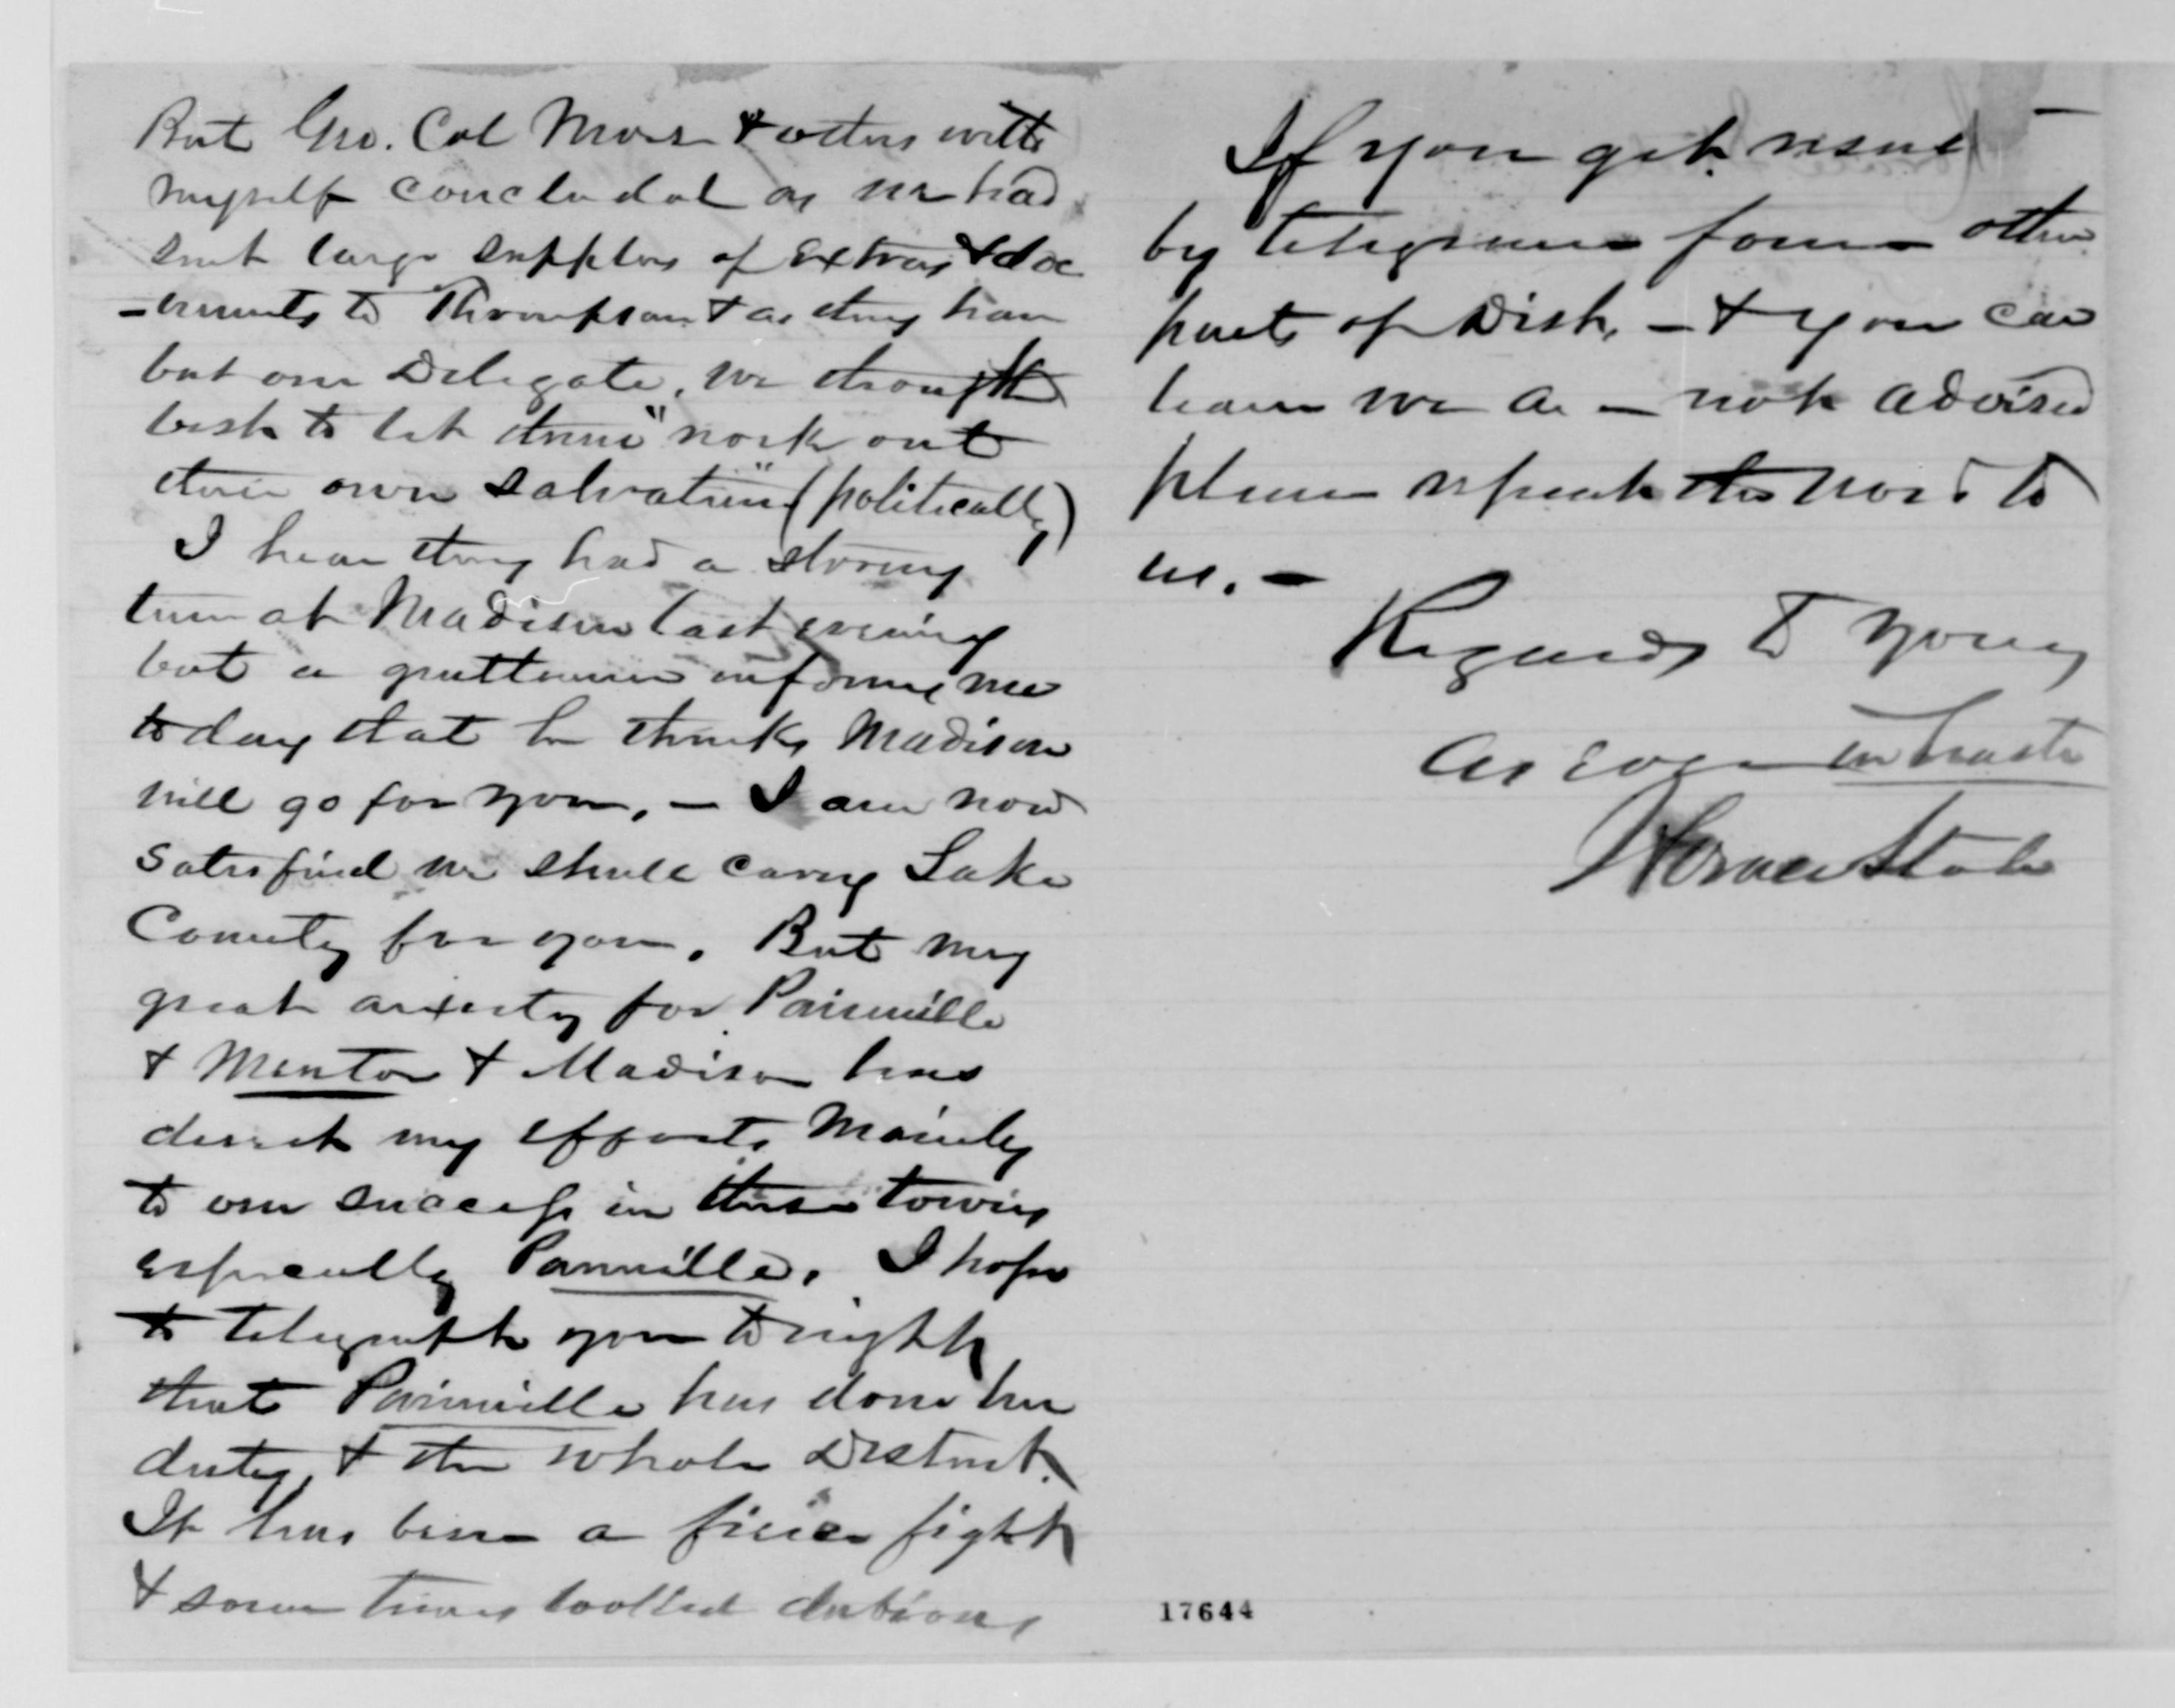 But Geo. Col Morse & others with
myself concluded as we had
sent large supplies of Extras & doc
-uments to Thompson & as they have
but one Delegate, we thought
best to let them "work out
their own salvation" (politically)
I hear they had a stormy
time at Madison last evening
but a gentleman informs me
to day that he thinks Madison
will go for you, – I am now
satisfied we shall carry Lake
County for you. But my
great anxiety for Painesville
& Mentor & Madison has
direct my efforts mainly
to our success in these towns
especially Painesville. I hope
to telegraph you to night
that Painesville has done her
duty, & the whole District.
It has been a fierce fight
& some times looked dubious,
If you get news
by telegrams from other
parts of Dist, – & you can
learn we are – not advised
please repeat the word to
us. –
Regards to yours
As ever in haste
Horace Steele
17644